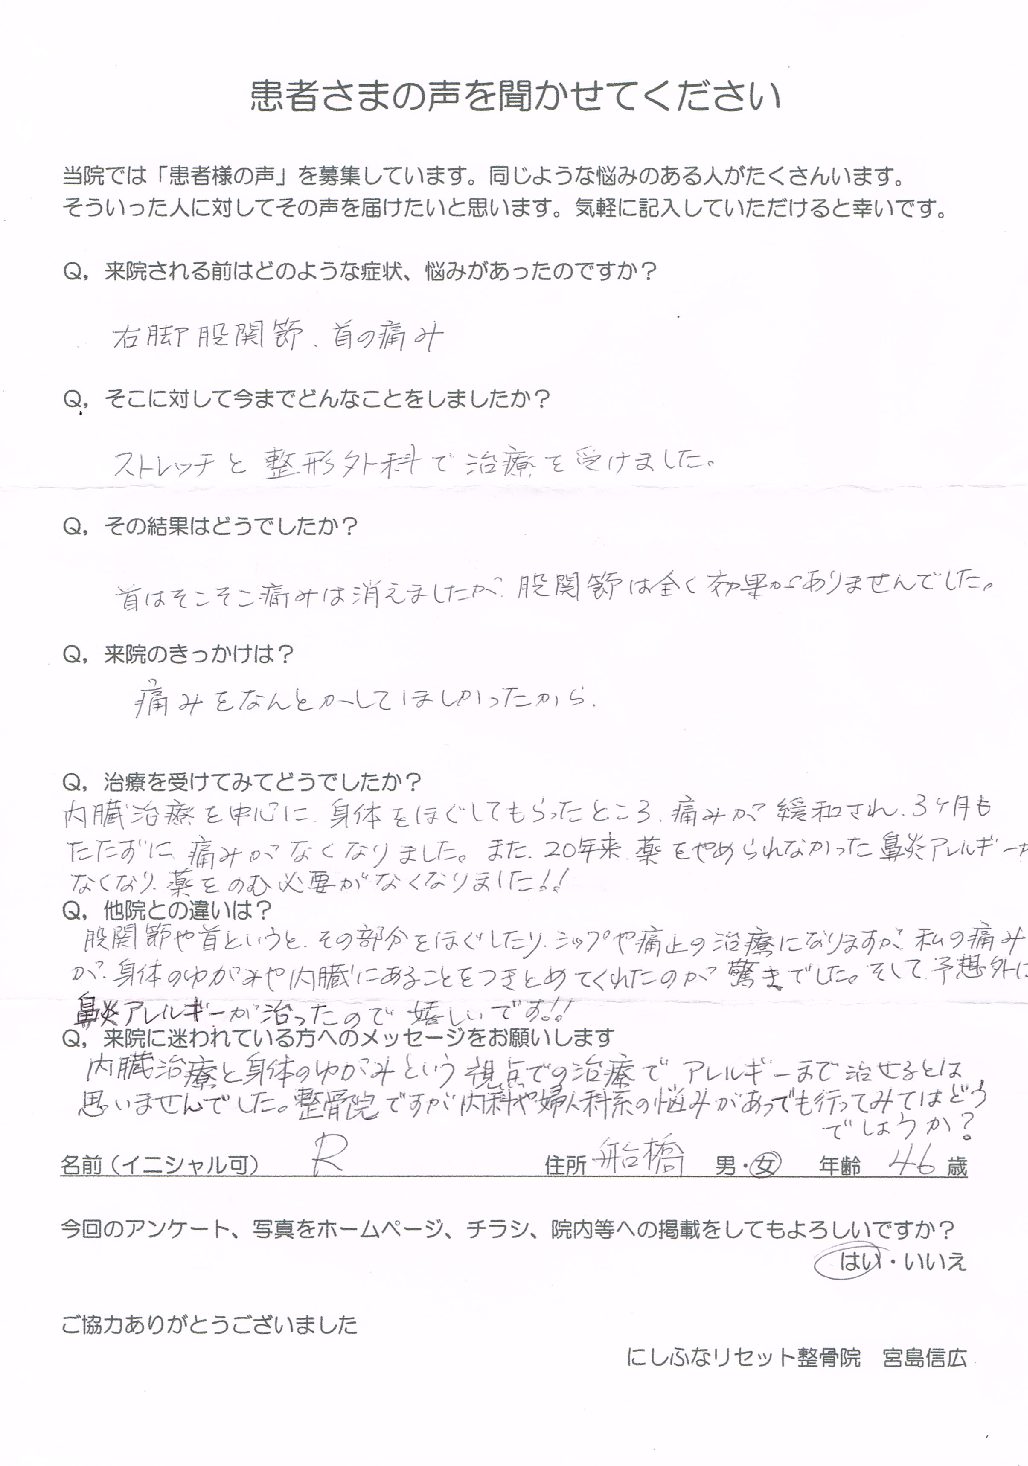 患者さまの声を聞かせてください
当院では「患者様の声」を募集しています。同じような悩みのある人がたくさんいます。
そういった人に対してその声を届けたいと思います。気軽に記入していただけると幸いです。
Q，来院される前はどのような症状、悩みがあったのですか？
右脚股関節、首の痛み
Q，そこに対して今までどんなことをしましたか？
ストレッチと整形外科で治療を受けました。
Q，その結果はどうでしたか？
首はそこそこ痛みは消えましたが、股関節は全く効果がありませんでした。
Q，来院のきっかけは？
痛みをなんとかしてほしかったから.
Q，治療を受けてみてどうでしたか？
内臓治療を中心に、身体をほぐしてもらったところ、痛みが緩和され、3ヶ月も
たたずに、痛みがなくなりました。また、20年来、薬をやめられなかった鼻炎アレルギーが
なくなり、薬をのむ必要がなくなりました!!
Q，他院との違いは？
股関節や首というと、その部分をほぐしたり、シップや痛止の治療になりますが、私の痛み
が、身体のゆがみや内臓にあることをつきとめてくれたのが驚きでした。そして予想外に
鼻炎アレルギーが治ったので嬉しいです!!
Q，来院に迷われている方へのメッセージをお願いします
内臓治療と身体のゆがみという視点での治療でアレルギーまで治せるとは
思いませんでした。整骨院ですが内科や婦人科系の悩みがあっても行ってみてはどう
でしょうか？
名前（イニシャル可） R 住所 船橋 男・女 年齢 46 歳
今回のアンケート、写真をホームページ、チラシ、院内等への掲載をしてもよろしいですか？
はい・いいえ
ご協力ありがとうございました
にしふなリセット整骨院 宮島信広